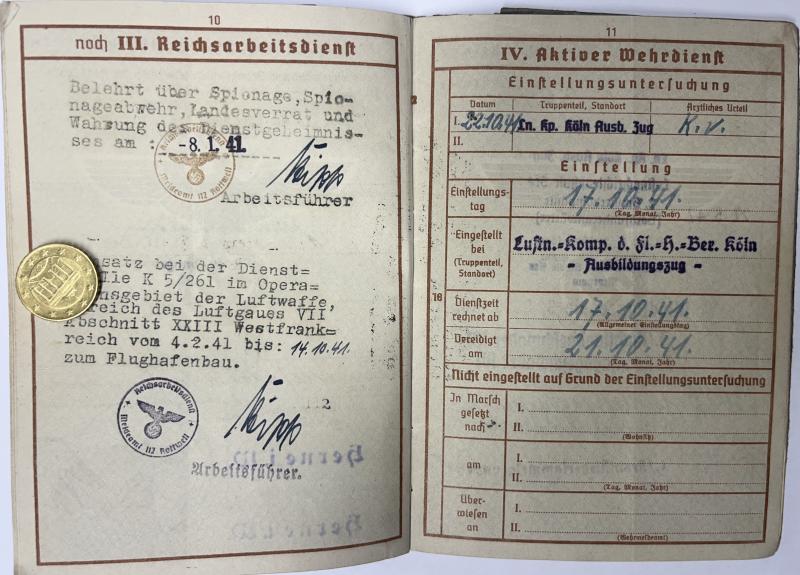 10
noch III. Reichsarbeitsdienst
Belehrt über Spionage, Spio-
nageabwehr, Landesverrat und
Wahrung des Dienstgeheimnis-
ses am :
-8.1.41
Arbeitsführer
satz bei der Dienst=
lle K 5/261 im Opera=
nsgebiet der Luftwaffe,
reich des Luftgaues VII
Abschnitt XXIII Westfrank=
reich vom 4.2.41 bis: 14.10.41.
zum Flughafenbau.
Reichsarbeitsdienst
Meldeamt 112 Rottweil
Arbeitsführer.
11
IV. Aktiver Wehrdienst
Einstellungsuntersuchung
Datum Truppenteil, Standort Ärztliches Urteil
I. 22.10.41 Ln. Kp. Köln Ausb. Zug K.v.
II.
Einstellung
Einstellungs-
tag
17.10.41.
(Tag, Monat, Jahr)
Eingestellt
bei
(Truppenteil,
Standort)
Luftn.-Komp. d. Fl.-H.-Ber. Köln
- Ausbildungszug -
18
Dienstzeit
rechnet ab
17.10.41.
(Allgemeiner Einstellungstag)
Vereidigt
am
21.10.41.
(Tag, Monat, Jahr)
Nicht eingestellt auf Grund der Einstellungsuntersuchung
In Marsch
gesetzt
nach
I.
II.
(Wohnsitz)
am
I.
II.
(Tag, Monat, Jahr)
Über-
wiesen
an
I.
II.
(Wehrmeldeamt)